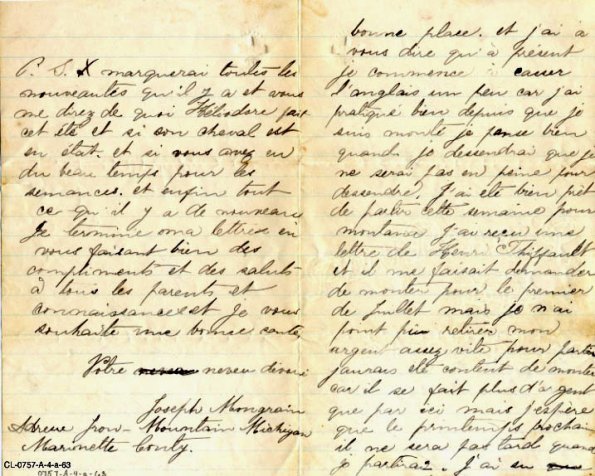 P. S. X marquerai toutes les
nouveautés qu'il y a et vous
me direz de quoi Héliodore fait
cet été et si son cheval est
en état. et si vous avez eu
du beau temps pour les
semances. et enfin tout
ce qu'il y a de nouveau
Je termine ma lettre en
vous faisant bien des
compliments et des saluts
à tous les parents et
connaissances et je vous
souhaite une bonne santé
Votre neveu devoué
Joseph Mongrain
Adresse Iron-Mountain Michigan
Marionette Conty.
CL-0757-A-4-a-63
bonne place. et j'ai à
vous dire qu'à présent
je commence à casser
l'anglais un peu car j'ai
pratiqué bien depuis que je
suis monté je pense bien
quand je dessendrai que je
ne serai pas en peine pour
dessendre. J'ai été bien prêt
de partir cette semaine pour
montana J'ai reçu une
lettre de Henri Thiffault
et il me faisait demander
de monter pour le premier
de Juillet mais je n'ai
point pu retirer mon
argent assez vite pour partir
j'aurais été content de monter
car il se fait plus d'argent
que par ici mais j'espère
que le printemps prochain
il ne sera pas tard quand
je partirai. J'ai eu